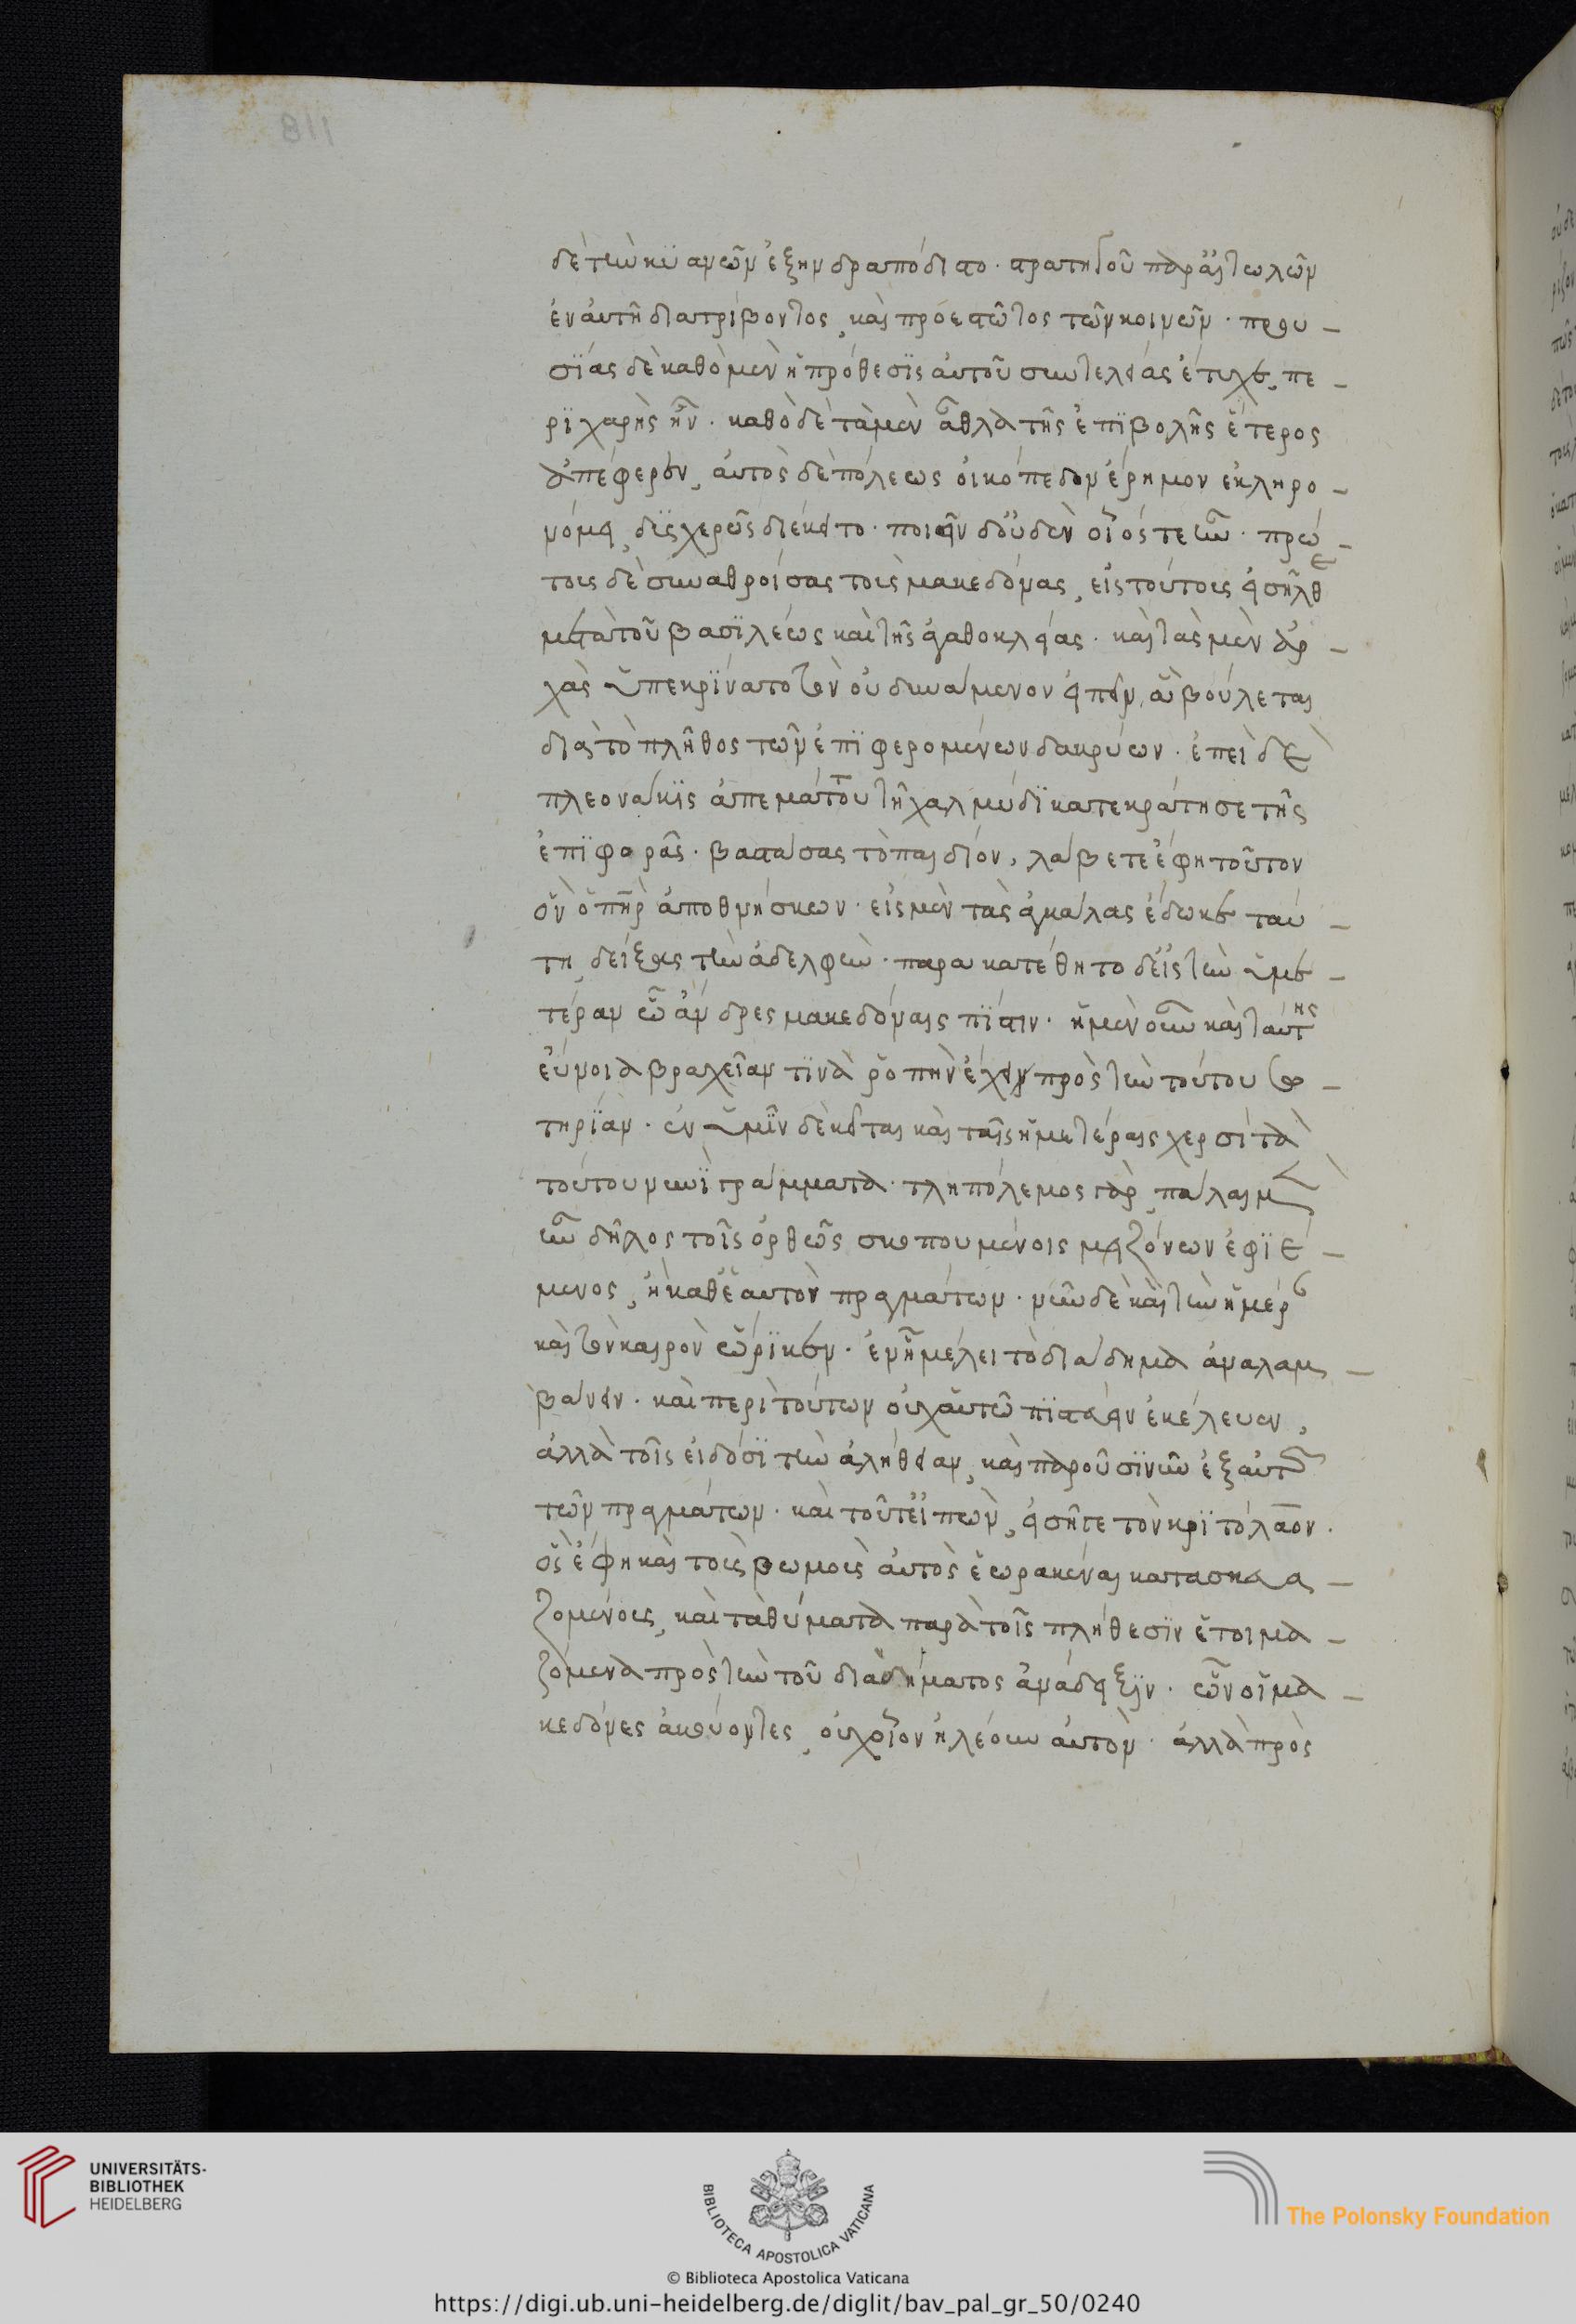 δὲ τὴν κϊανῶν ἐξηνδραποδίσατο. στρατηγοῦ παρ' αἰτωλῶν
ἐν αὐτῆ διατρίβοντος, καὶ προεστῶτος τῶν κοινῶν. πρου-
σΐας δὲ καθὸ μὲν ἡ πρόθεσϊς αὐτοῦ συντελείας ἔτυχε, πε-
ρϊχαρὴς ἦν. καθὸ δὲ τὰ μὲν ἆθλα τῆς ἐπϊβολῆς ἕτερος
ἀπέφερεν, αὐτὸς δὲ πόλεως οἰκόπεδον ἔρημον ἐκληρο-
νόμει, δϋσχερῶς διέκειτο. ποιεῖν δ' οὐδὲν οἷός τε ἦν. πρώ-
τους δὲ συναθροίσας τοὺς μακεδόνας, εἰς τούτους εἰσῆλθε
μετὰ τοῦ βασϊλέως καὶ τῆς ἀγαθοκλείας. καὶ τὰς μὲν ἀρ-
χὰς ὑπεκρΐνατο τὸν οὐ δυνάμενον εἰπεῖν, ἃ βούλεται
διὰ τὸ πλῆθος τῶν ἐπϊφερομένων δακρύων. ἐπεὶ δὲ
πλεονάκϊς ἀπεμάττου τῆ χλαμύδϊ κατεκράτησε τῆς
ἐπϊφορᾶς. βαστάσας τὸ παιδίον, λάβετε ἔφη τοῦτον
ὃν ὁ πηρ ἀποθνήσκων. εἰς μὲν τὰς ἀγκάλας ἔδωκε ταύ-
τη, δείξας τὴν ἀδελφήν. παρακατέθητο δ' εἰς τὴν ὑμε-
τέραν ὦ ἄνδρες μακεδόναις πΐστιν. ἡ μὲν οὖν καὶ ταύτης
εὔνοια βραχεῖαν τϊνὰ ῥοπὴν ἔχειν πρὸς τὴν τούτου σω-
τηρΐαν. ἐν ὑμῖν δὲ κεῖται καὶ ταῖς ἡμετέραις χερσὶ τὰ
τούτου νυνῒ γράμματα. τληπόλεμος γὰρ, πάλαι μὲν
ἦν δῆλος τοῖς ὀρθῶς σκοπουμένοις μειζόνων ἐφϊέ-
μενος, ἢ καθ' ἑαυτὸν πραγμάτων. νῦν δὲ καὶ τὴν ἡμέρ
καὶ τὸν καιρὸν ὥρϊκεν. ἐν ἧ μέλει τὸ διάδημα ἀναλαμ-
βάνειν. καὶ περὶ τούτων οὐχ αὑτῶ πϊστεύειν ἐκέλευεν,
ἀλλὰ τοῖς εἰδόσϊ τὴν ἀλήθειαν, καὶ παροῦσϊ νῦν ἐξ αὐτῶν
τῶν πραγμάτων. καὶ τοῦτ' εἰπὼν, εἰσῆγε τὸν κρϊτόλαον.
ὃς ἔφη καὶ τοὺς βωμοὺς αὐτὸς ἑωρακέναι κατασκευα-
ζομένους, καὶ τὰ θύματα παρὰ τοῖς πλήθεσϊν ἑτοιμα-
ζόμενα πρὸς τὴν τοῦ διαδήματος ἀνάδειξϊν. ὧν οἱ μα-
κεδόνες ἀκούοντες, οὐχ οἷον ἠλέουν αὐτὸν. ἀλλὰ πρὸς
118
UNIVERSITÄTS-
BIBLIOTHEK
HEIDELBERG
BIBLIOTECA APOSTOLICA VATICANA
The Polonsky Foundation
© Biblioteca Apostolica Vaticana
https://digi.ub.uni-heidelberg.de/diglit/bav_pal_gr_50/0240